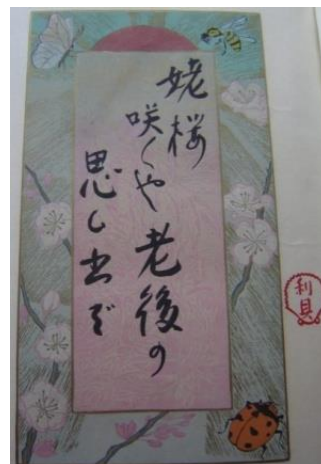 姥桜
咲くや老後の
思ひ出で
利貝